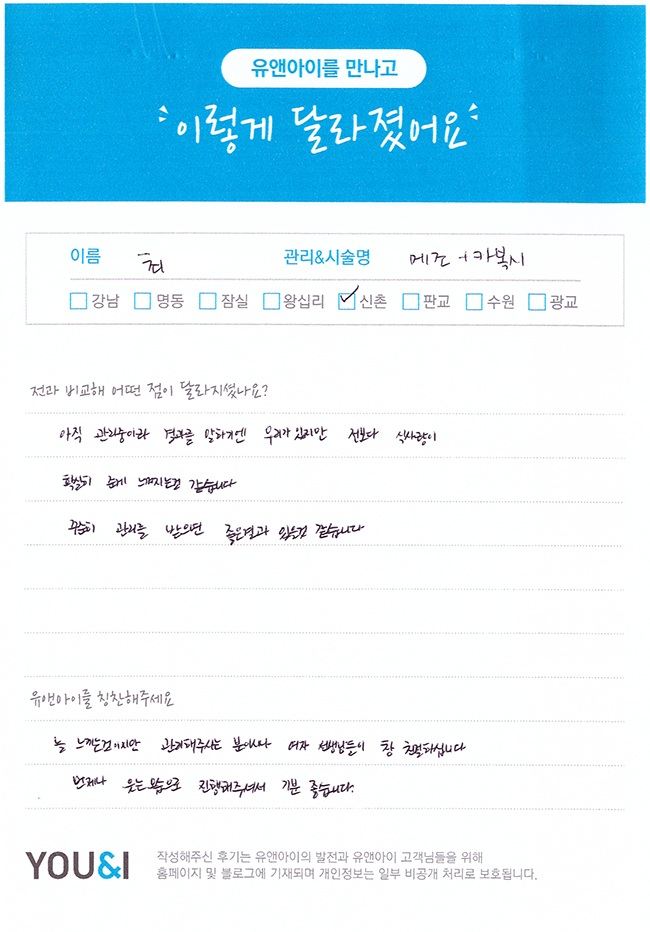 유앤아이를 만나고
이렇게 달라졌어요
이름 최 관리&시술명 메조 + 카복시
강남 명동 잠실 왕십리 신촌 판교 수원 광교
전과 비교해 어떤 점이 달라지셨나요?
아직 관리중이라 결과를 말하기엔 무리가 있지만 전보다 식사량이
확실히 줄게 느껴지는건 같습니다
꾸준히 관리를 받으면 좋은결과 있을것 같습니다
유앤아이를 칭찬해주세요
늘 느끼는건이지만 관리해주시는 분이나 여자 선생님들이 참 친절하십니다
언제나 웃는모습으로 진행해주셔서 기분 좋습니다.
YOU&I
작성해주신 후기는 유앤아이의 발전과 유앤아이 고객님들을 위해
홈페이지 및 블로그에 기재되며 개인정보는 일부 비공개 처리로 보호됩니다.